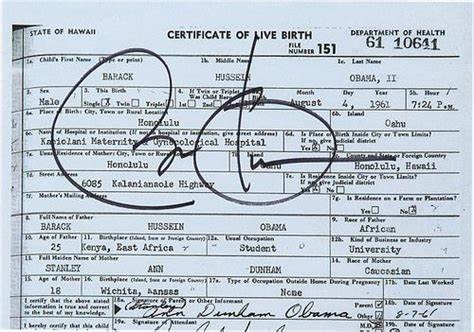 STATE OF HAWAII CERTIFICATE OF LIVE BIRTH DEPARTMENT OF HEALTH
FILE NUMBER 151 61 10641
1a. Child's First Name (Type or print) 1b. Middle Name 1c. Last Name
BARACK HUSSEIN OBAMA, II
2. Sex 3. This Birth 4. If Twin or Triplet, Was Child Born Month Day Year 5b. Hour
Male Single X Twin Triplet 1st 2nd 3rd August 4, 1961 7:24 P.M.
6a. Place of Birth: City, Town or Rural Location 6b. Island
Honolulu Oahu
6c. Name of Hospital or Institution (If not in hospital or institution, give street address) 6d. Is Place of Birth Inside City or Town Limits? If no, give judicial district
Kapiolani Maternity Gynecological Hospital Yes X No
7a. Usual Residence of Mother: City, Town or Rural Location 7b. Island 7c. County and State or Foreign Country
Honolulu Honolulu, Hawaii
7d. Street Address 7e. Is Residence Inside City or Town Limits? If no, give judicial district
6085 Kalanianaole Highway Yes X No
7f. Mother's Mailing Address 7g. Is Residence on a Farm or Plantation?
Yes No X
8. Full Name of Father 9. Race of Father
BARACK HUSSEIN OBAMA African
10. Age of Father 11. Birthplace (Island, State or Foreign Country) 12a. Usual Occupation 12b. Kind of Business or Industry
25 Kenya, East Africa Student University
13. Full Maiden Name of Mother 14. Race of Mother
STANLEY ANN DUNHAM Caucasian
15. Age of Mother 16. Birthplace (Island, State or Foreign Country) 17a. Type of Occupation Outside Home During Pregnancy 17b. Date Last Worked
18 Wichita, Kansas None
I certify that the above stated information is true and correct to the best of my knowledge. 18a. Signature of Parent or Other Informant Parent Other 18b. Date of Signature
Ann Dunham Obama 8-7-61
I hereby certify that this child 19a. Signature of Attendant M.D. 19b. Date of Signature